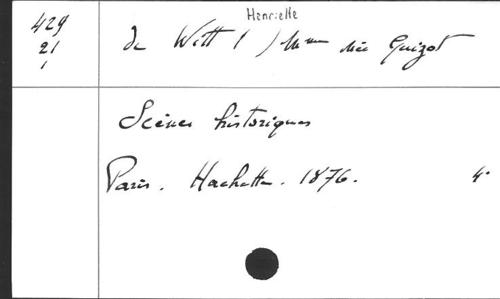 429
21
1
Henriette
de Witt ( ) Mme née Guizot
Scènes historiques
Paris. Hachette. 1876. 4°